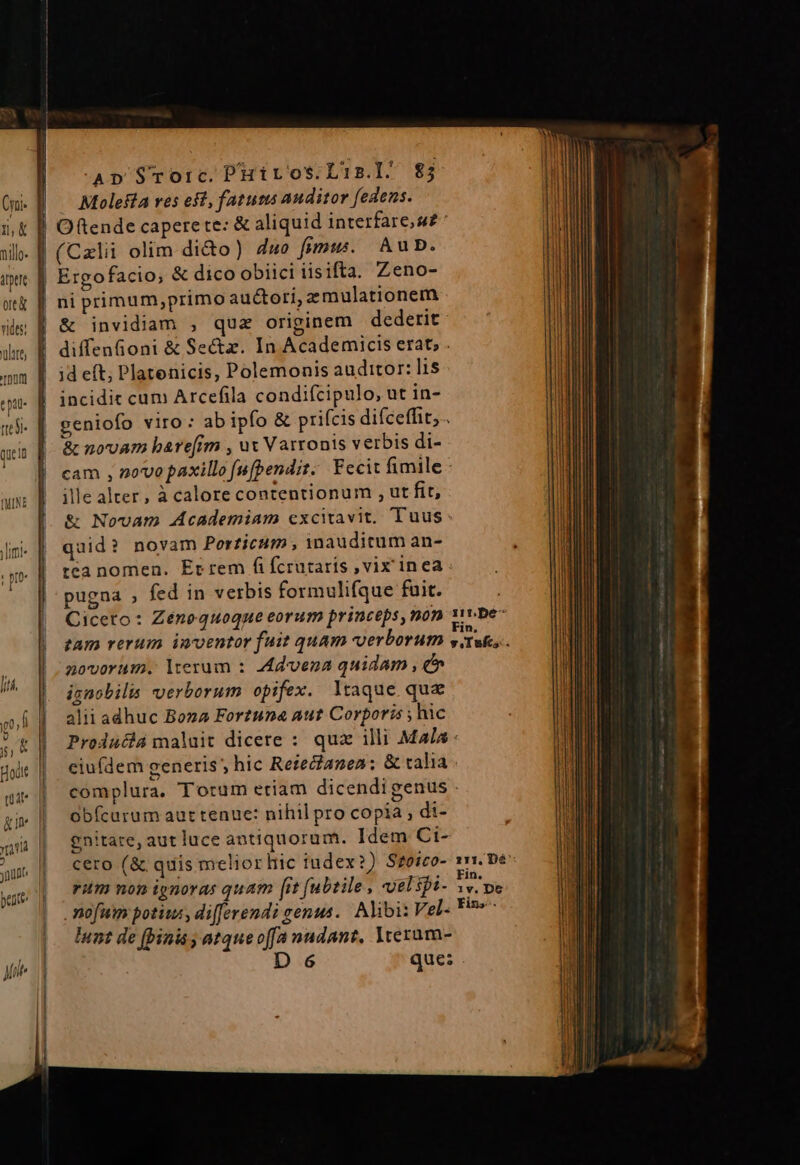 AD STOIC. PHILOS. LIB. I. 85
Molesta res est, fatuus auditor sedens.
Ostende capere te: & aliquid interfare, ut
(Cælii olim dicto) duo simus. AUD.
Ergo facio, & dico obiici iis ista. Zeno-
ni primum, primo auctori, æmulationem
& invidiam, quæ originem dederit
dissensioni & Sectæ. In Academicis erat,
id est, Platonicis, Polemonis auditor: Iis
incidit cum Arcesila condiscipulo, ut in-
genioso viro: ab ipso & priscis discessit,
& novam hæresim, ut Varronis verbis di-
cam, novo paxillo suspendit. Fecit simile
ille alter, à calore contentionum, ut fit,
& Novam Academiam excitavit. Tuus
quid? novam Porticum, inauditum an-
tea nomen. Et rem si scrutaris, vix in ea
pugna, sed in verbis formulisque fuit.
Cicero: Zenoquoque eorum princeps, non
tam rerum inventor fuit quam verborum
novorum. Iterum: Advena quidam, &
ignobilis verborum opifex. Itaque quæ
alii adhuc Bona Fortunæ aut Corporis; hic
Producta maluit dicere: quæ illi Mala
eiusdem generis, hic Reiectanea: & talia
complura. Totum etiam dicendi genus
obscurum aut tenue: nihil pro copia, di-
gnitate, aut luce antiquorum. Idem Ci-
cero (& quis melior hic iudex?) Stoico-
rum non ignoras quam sit subtile, vel spi-
nosum potius, disserendi genus. Alibi: Vel-
lunt de spinis, atque ossa nudant. Iterum-
D 6 que:
III. De
Fin.
V. Tusc.
III. De
Fin.
IV. De
Fin.